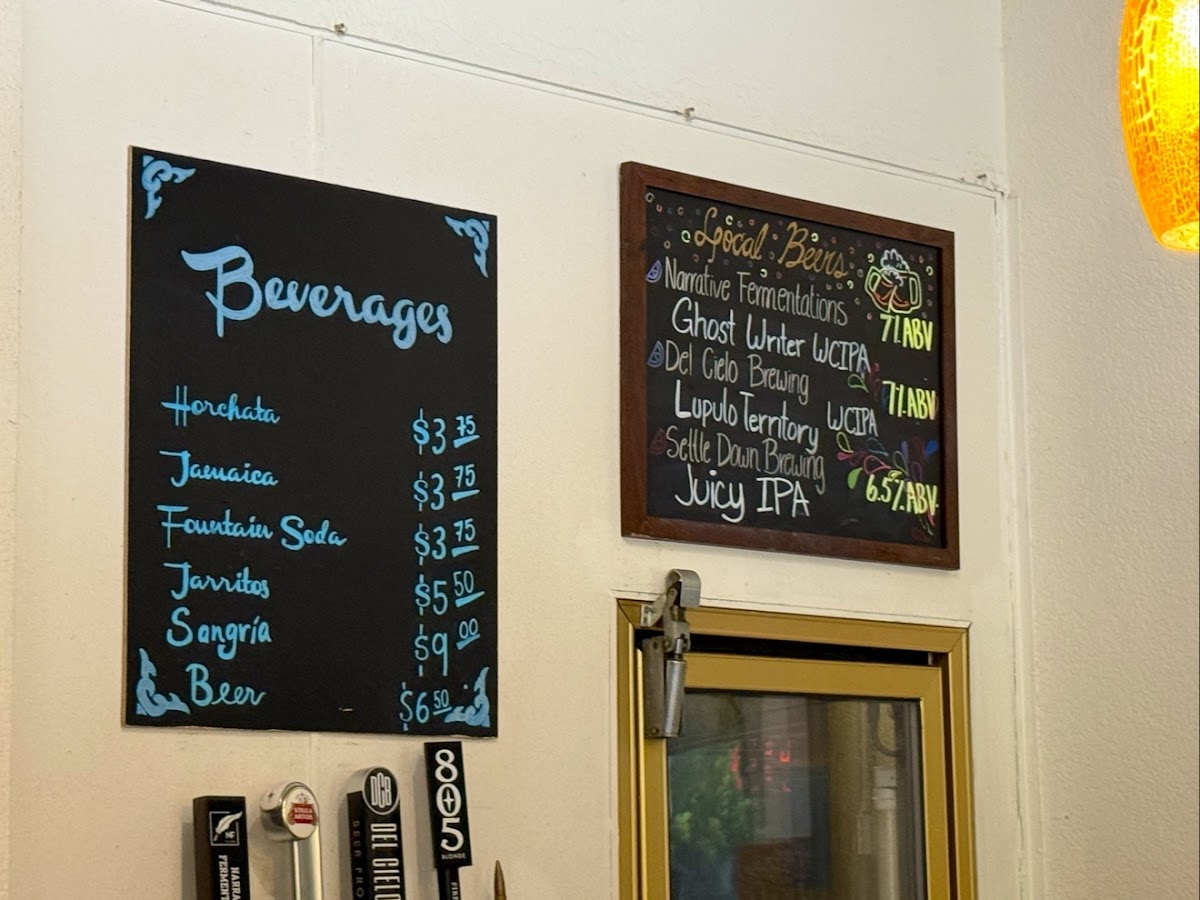 Beverages
Horchata $3 75
Jamaica $3 75
Fountain Soda $3 75
Jarritos $5 50
Sangría $9 00
Beer $6 50
Local Beers
Narrative Fermentations
Ghost Writer WCIPA 7% ABV
Del Cielo Brewing
Lupulo Terrytory WCIPA 7% ABV
Settle Down Brewing
Juicy IPA 6.5% ABV
NF
NARRA
FERMENT
STELLA
ARTOIS
DCB
DEL CIELO
BEER PRO
805
BLONDE
FIRE